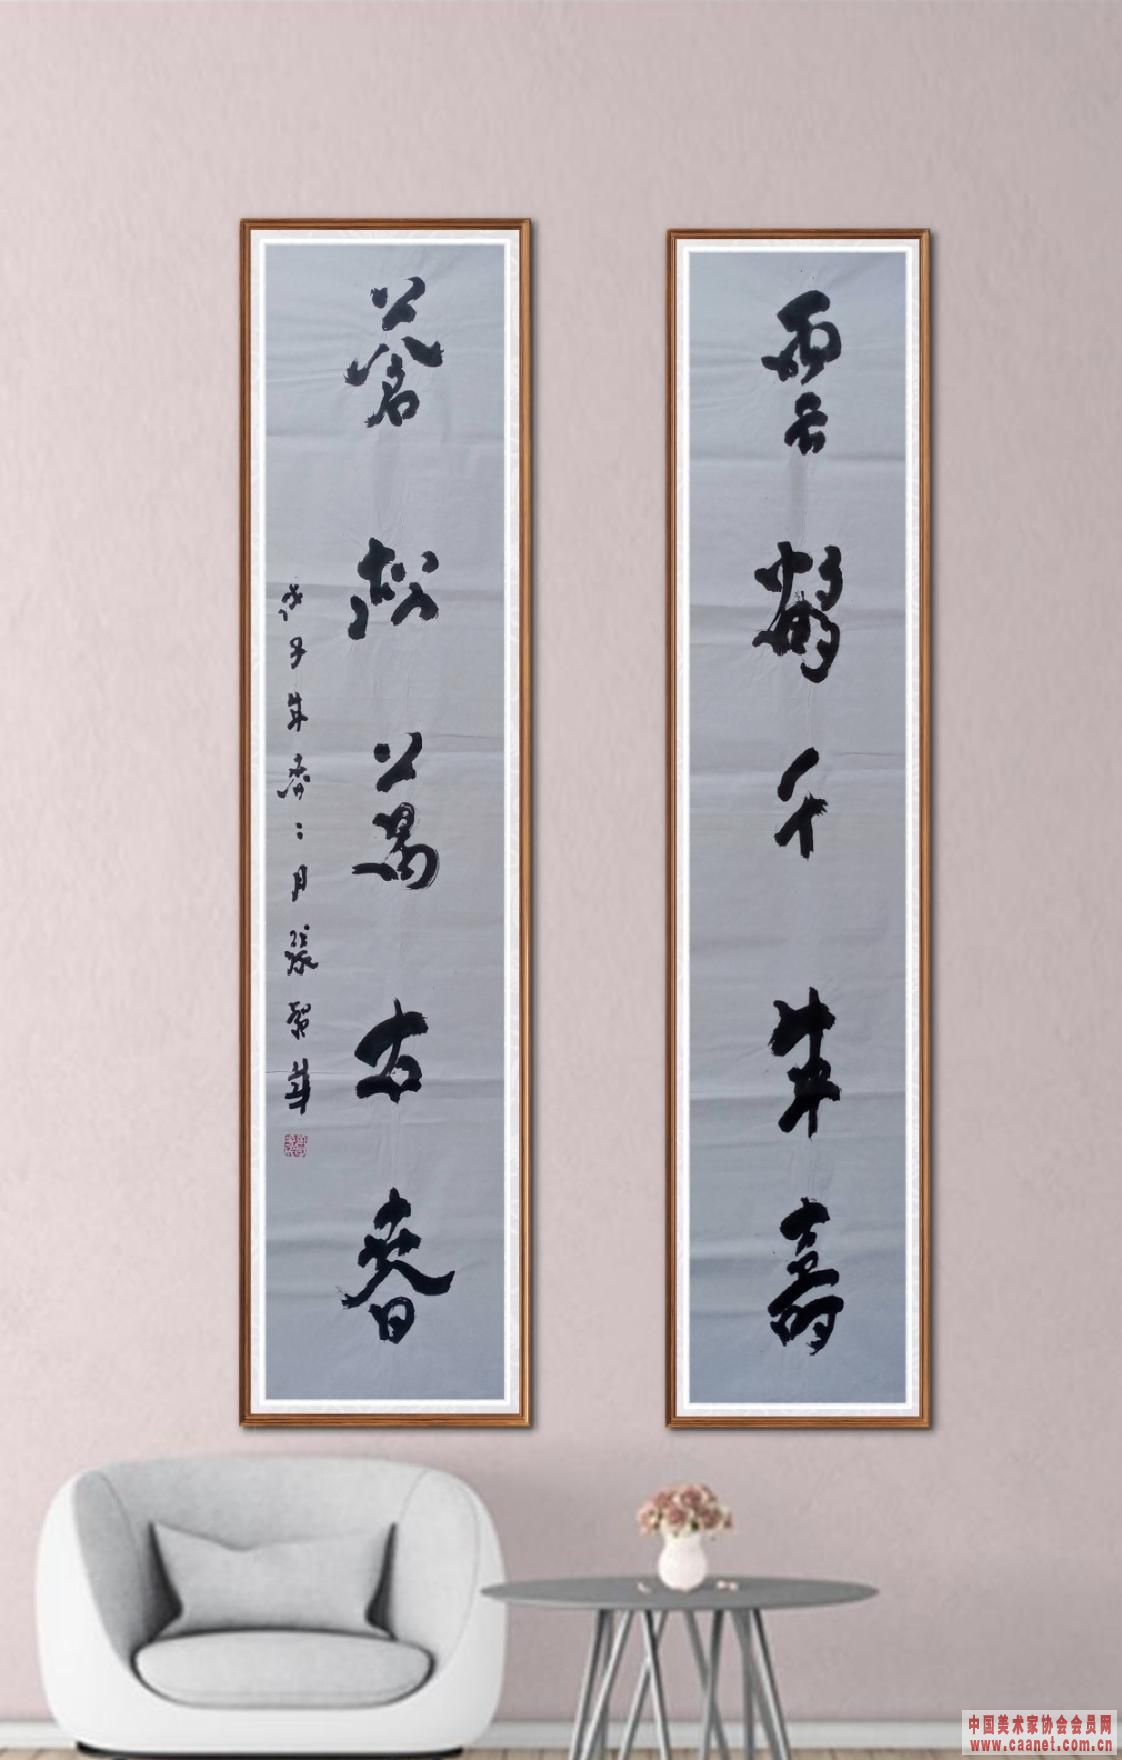 雲鶴千年壽
蒼松萬古春
戊子年春二月張聖華
中国美术家协会会员网
www.caanet.com.cn